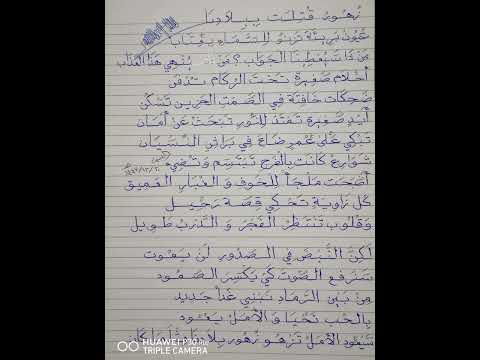 زهور قتلت ببلادنا
عيون بريئة ترنو للسماء بعتاب
من ذا سيعطينا الجواب؟ من ينهي هذا العذاب
أحلام صغيرة تحت الركام تدفن
ضحكات خافتة في الصمت الحزين تسكن
أيدٍ صغيرة تمتد للنور تبحث عن أمان
تبكي على عمر ضاع في براثن النسيان
شوارع كانت بالفرح تبتسم وتضيء
أضحت ملجأ للخوف و الغبار العميق
كل زاوية تحكي قصة رحيل
وقلوب تنتظر الفجر و الدرب طويل
لكن النبض في الصدور لن يموت
سنرفع الصوت كي يكسر الصمود
من بين الرماد نبني غداً جديد
بالحب نحيا و الأمل يعود
سيعود الأمل تزهو زهور بلادنا مثلما كان
HUAWEI P30 lite
TRIPLE CAMERA